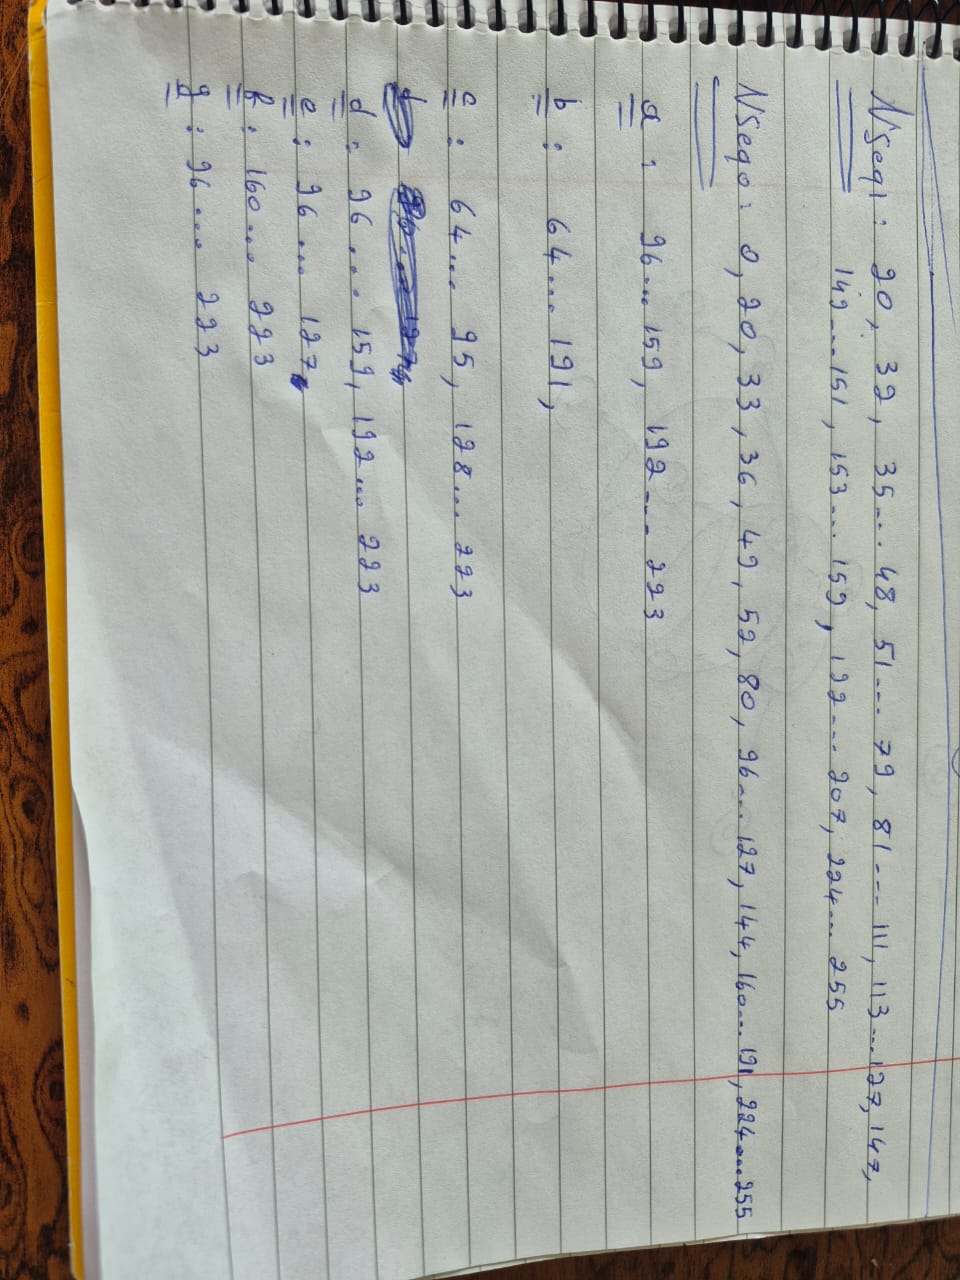 NSeq1: 20, 32, 35... 48, 51... 79, 81... 111, 113...127, 147,
149...151, 153... 159, 192... 207, 224... 255
NSeq0: 0, 20, 33, 36, 49, 52, 80, 96... 127, 144, 160... 191, 224...255
a: 96... 159, 192... 223
b: 64... 191,
c: 64... 95, 128... 223
d: 96... 159, 192... 223
e: 96... 127
f: 160... 223
g: 96... 223